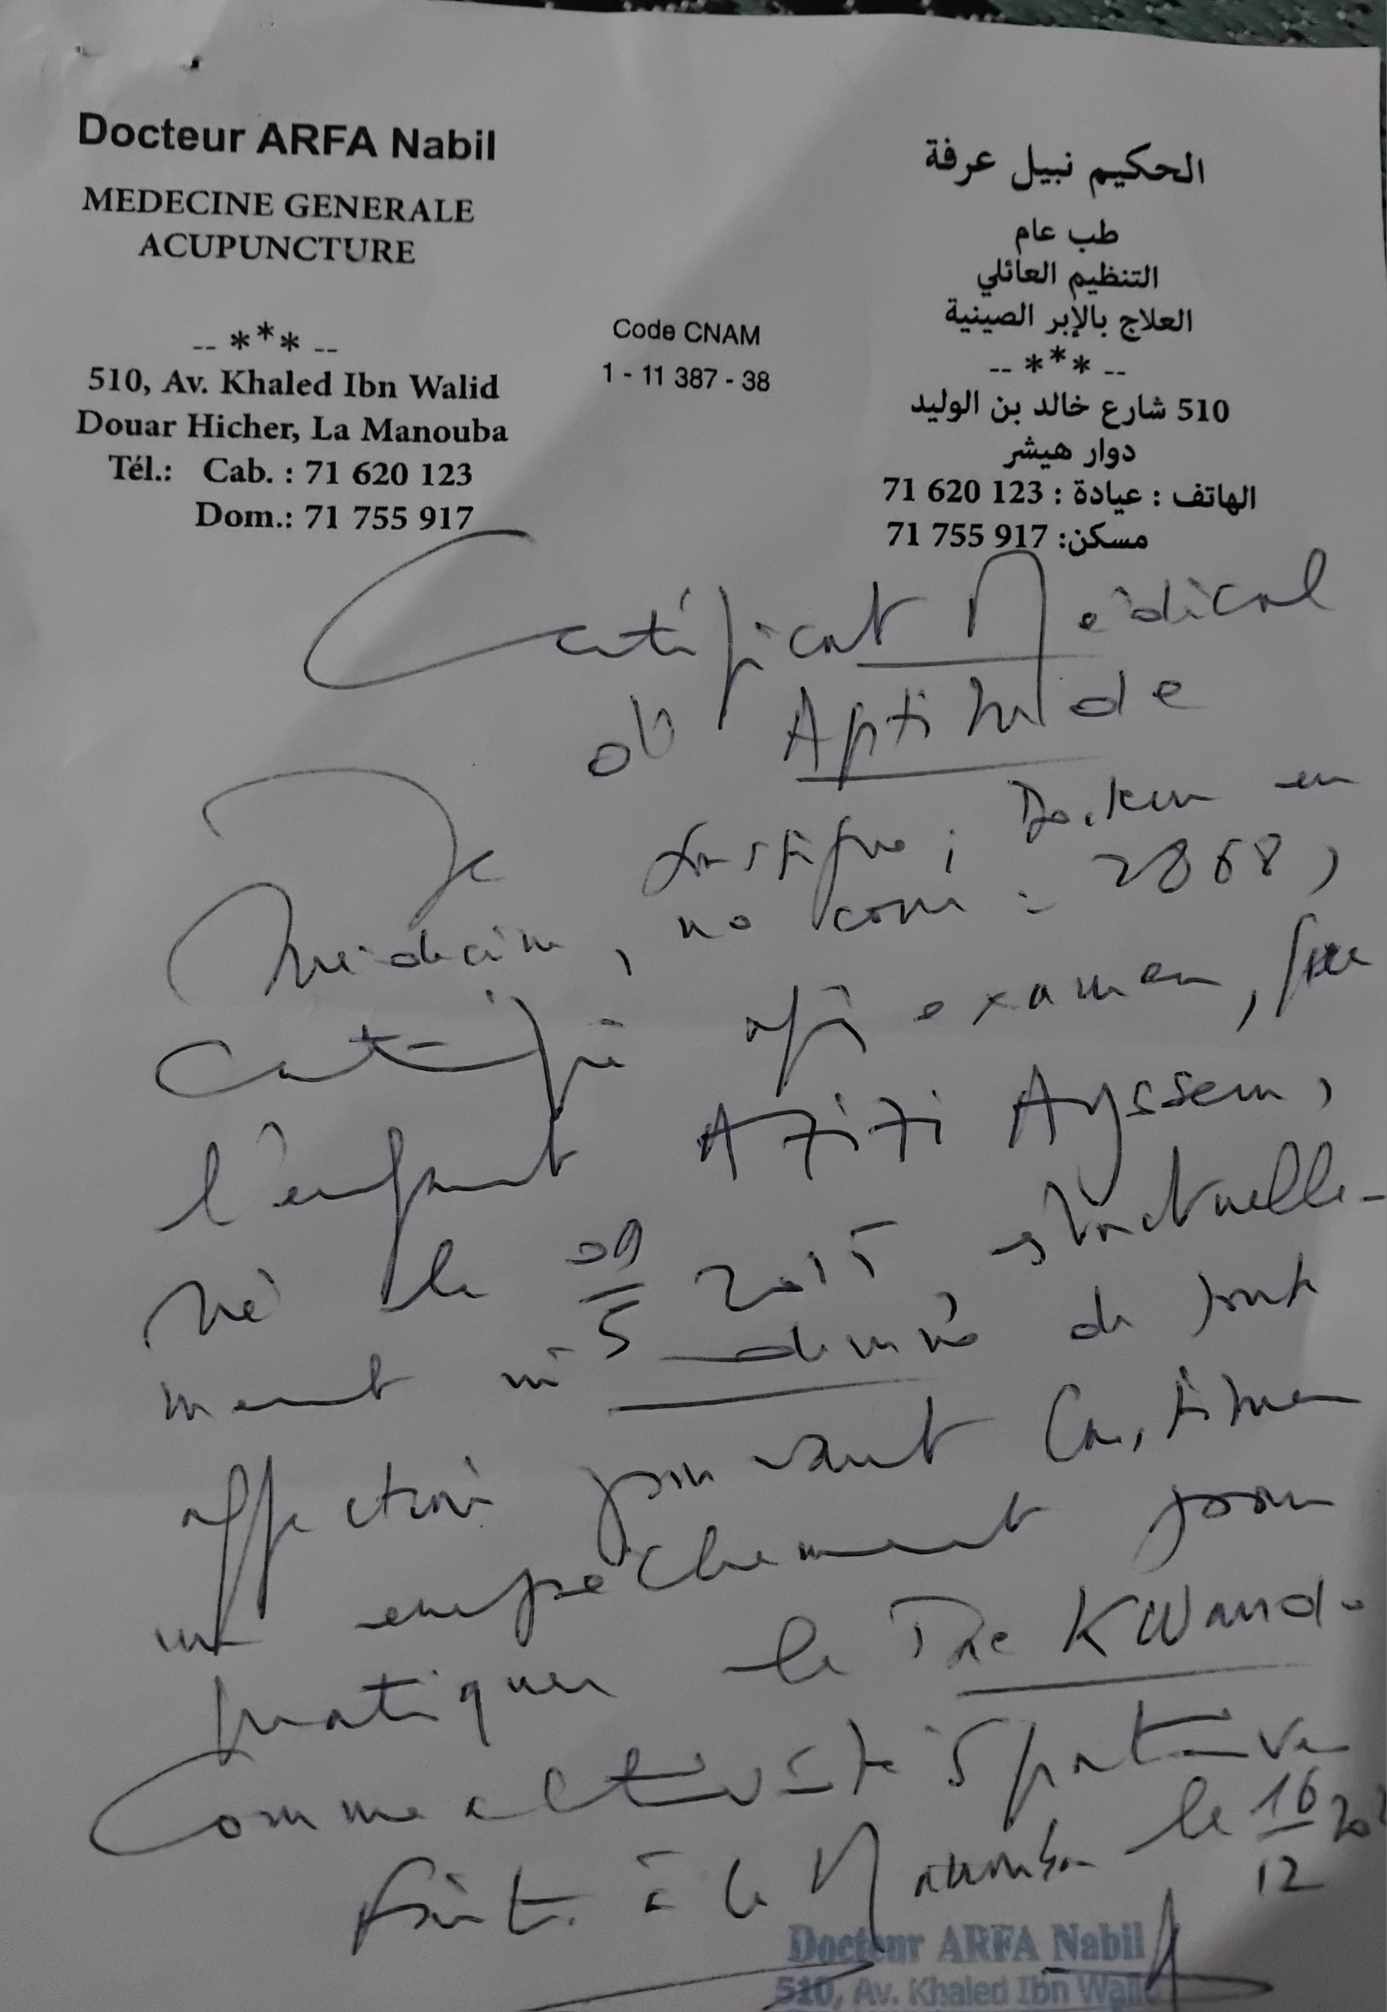 Docteur ARFA Nabil
MEDECINE GENERALE
ACUPUNCTURE
-- *** --
510, Av. Khaled Ibn Walid
Douar Hicher, La Manouba
Tél.: Cab. : 71 620 123
Dom.: 71 755 917
Code CNAM
1 - 11 387 - 38
الحكيم نبيل عرفة
طب عام
التنظيم العائلي
العلاج بالإبر الصينية
-- *** --
510 شارع خالد بن الوليد
دوار هيشر
الهاتف : عيادة : 123 620 71
مسكن: 917 755 71
Certificat Médical
d' Aptitude
Je soussigné, Docteur en
Médecine, no : 2868,
certifie après examen, que
l'enfant Azizi Ayssem,
né le 09/5 2015 est actuelle-
ment indemne de toute
affection pouvant constituer
un empêchement pour
pratiquer le Tae Kwando
comme activité sportive
Fait à la Manouba le 16/12
Docteur ARFA Nabil
510, Av. Khaled Ibn Walid